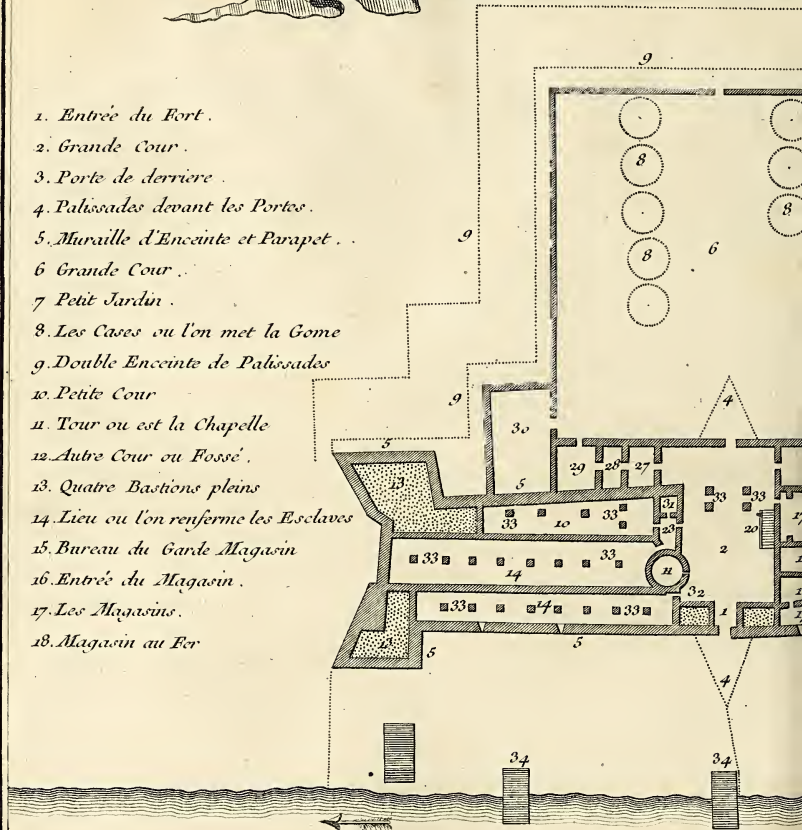 1. Entrée du Fort.
2. Grande Cour.
3. Porte de derriere.
4. Palissades devant les Portes.
5. Muraille d'Enceinte et Parapet.
6 Grande Cour.
7 Petit Jardin.
8. Les Cases ou l'on met la Gome
9. Double Enceinte de Palissades
10. Petite Cour
11. Tour ou est la Chapelle
12. Autre Cour ou Fossé.
13. Quatre Bastions pleins
14. Lieu ou l'on renferme les Esclaves
15. Bureau du Garde Magasin
16. Entrée du Magasin.
17. Les Magasins.
18. Magasin au Fer
9
8
8
9
8
6
9
4
30
5
29 28 27
13
5
31
33 33
33 10 33
23
20
17
2
33 33
14
11
32
33 14 33
1
5
5
4
34
34